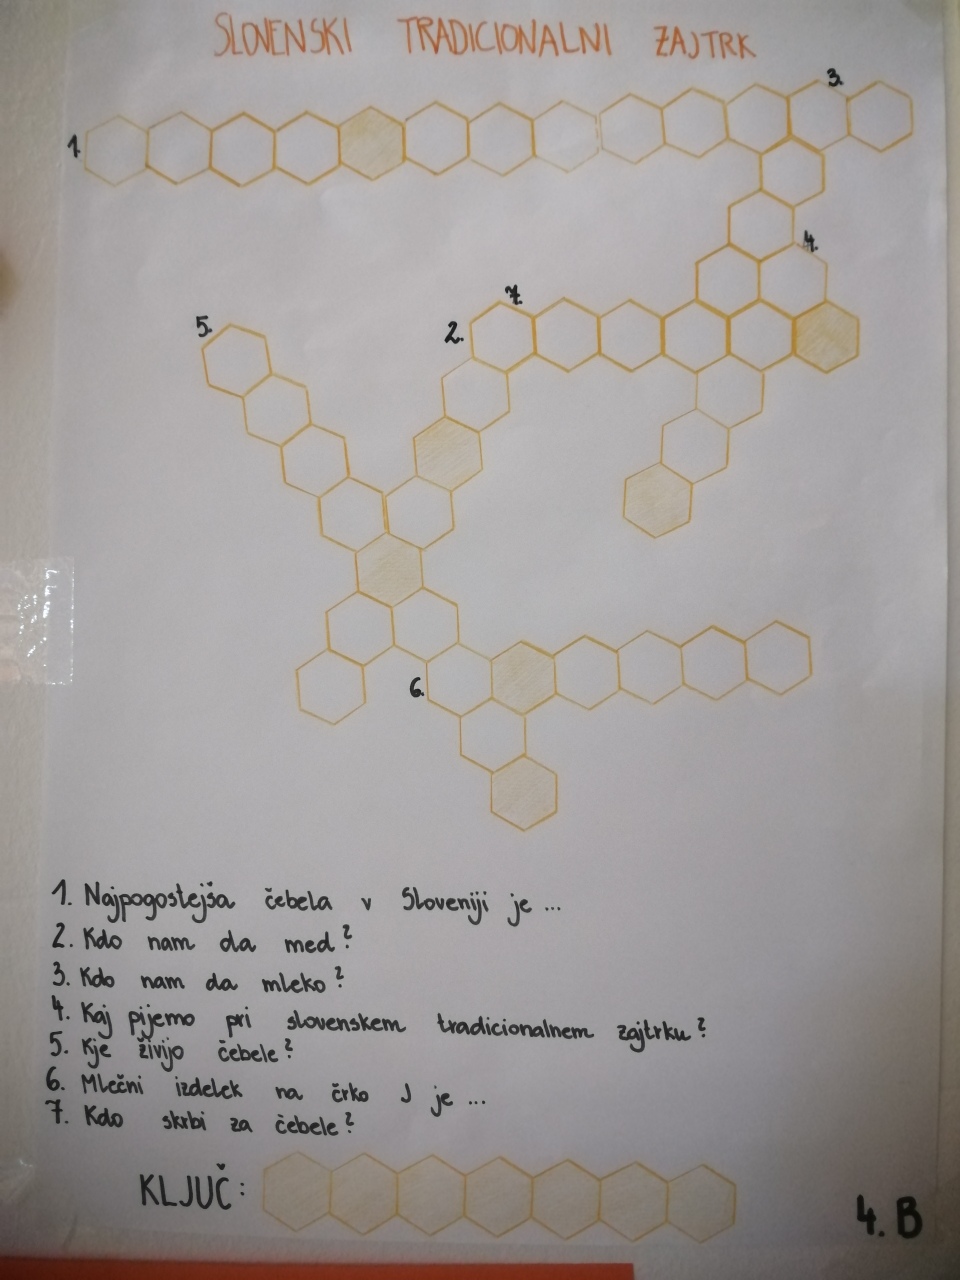 SLOVENSKI TRADICIONALNI ZAJTRK
3.
1.
4.
7.
5.
2.
6.
1. Najpogostejša čebela v Sloveniji je ...
2. Kdo nam da med?
3. Kdo nam da mleko?
4. Kaj pijemo pri slovenskem tradicionalnem zajtrku?
5. Kje živijo čebele?
6. Mlečni izdelek na črko J je ...
7. Kdo skrbi za čebele?
KLJUČ:
4. B